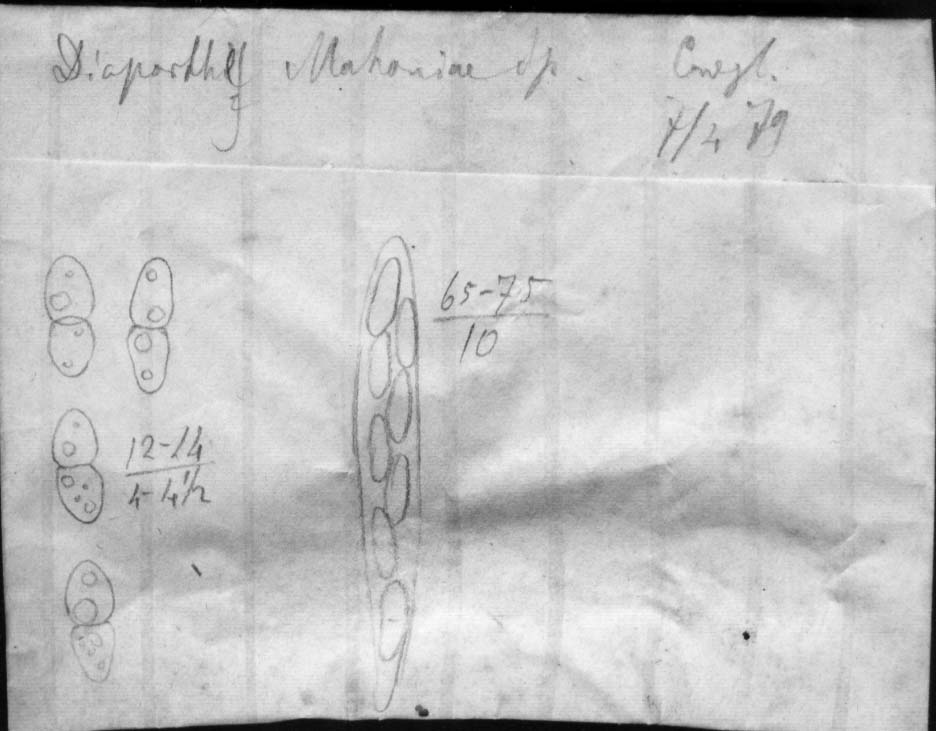 Diaporthe Mahoniae Sp. Conegl.
7/4 79
65-75
10
12-14
4-4 1/2